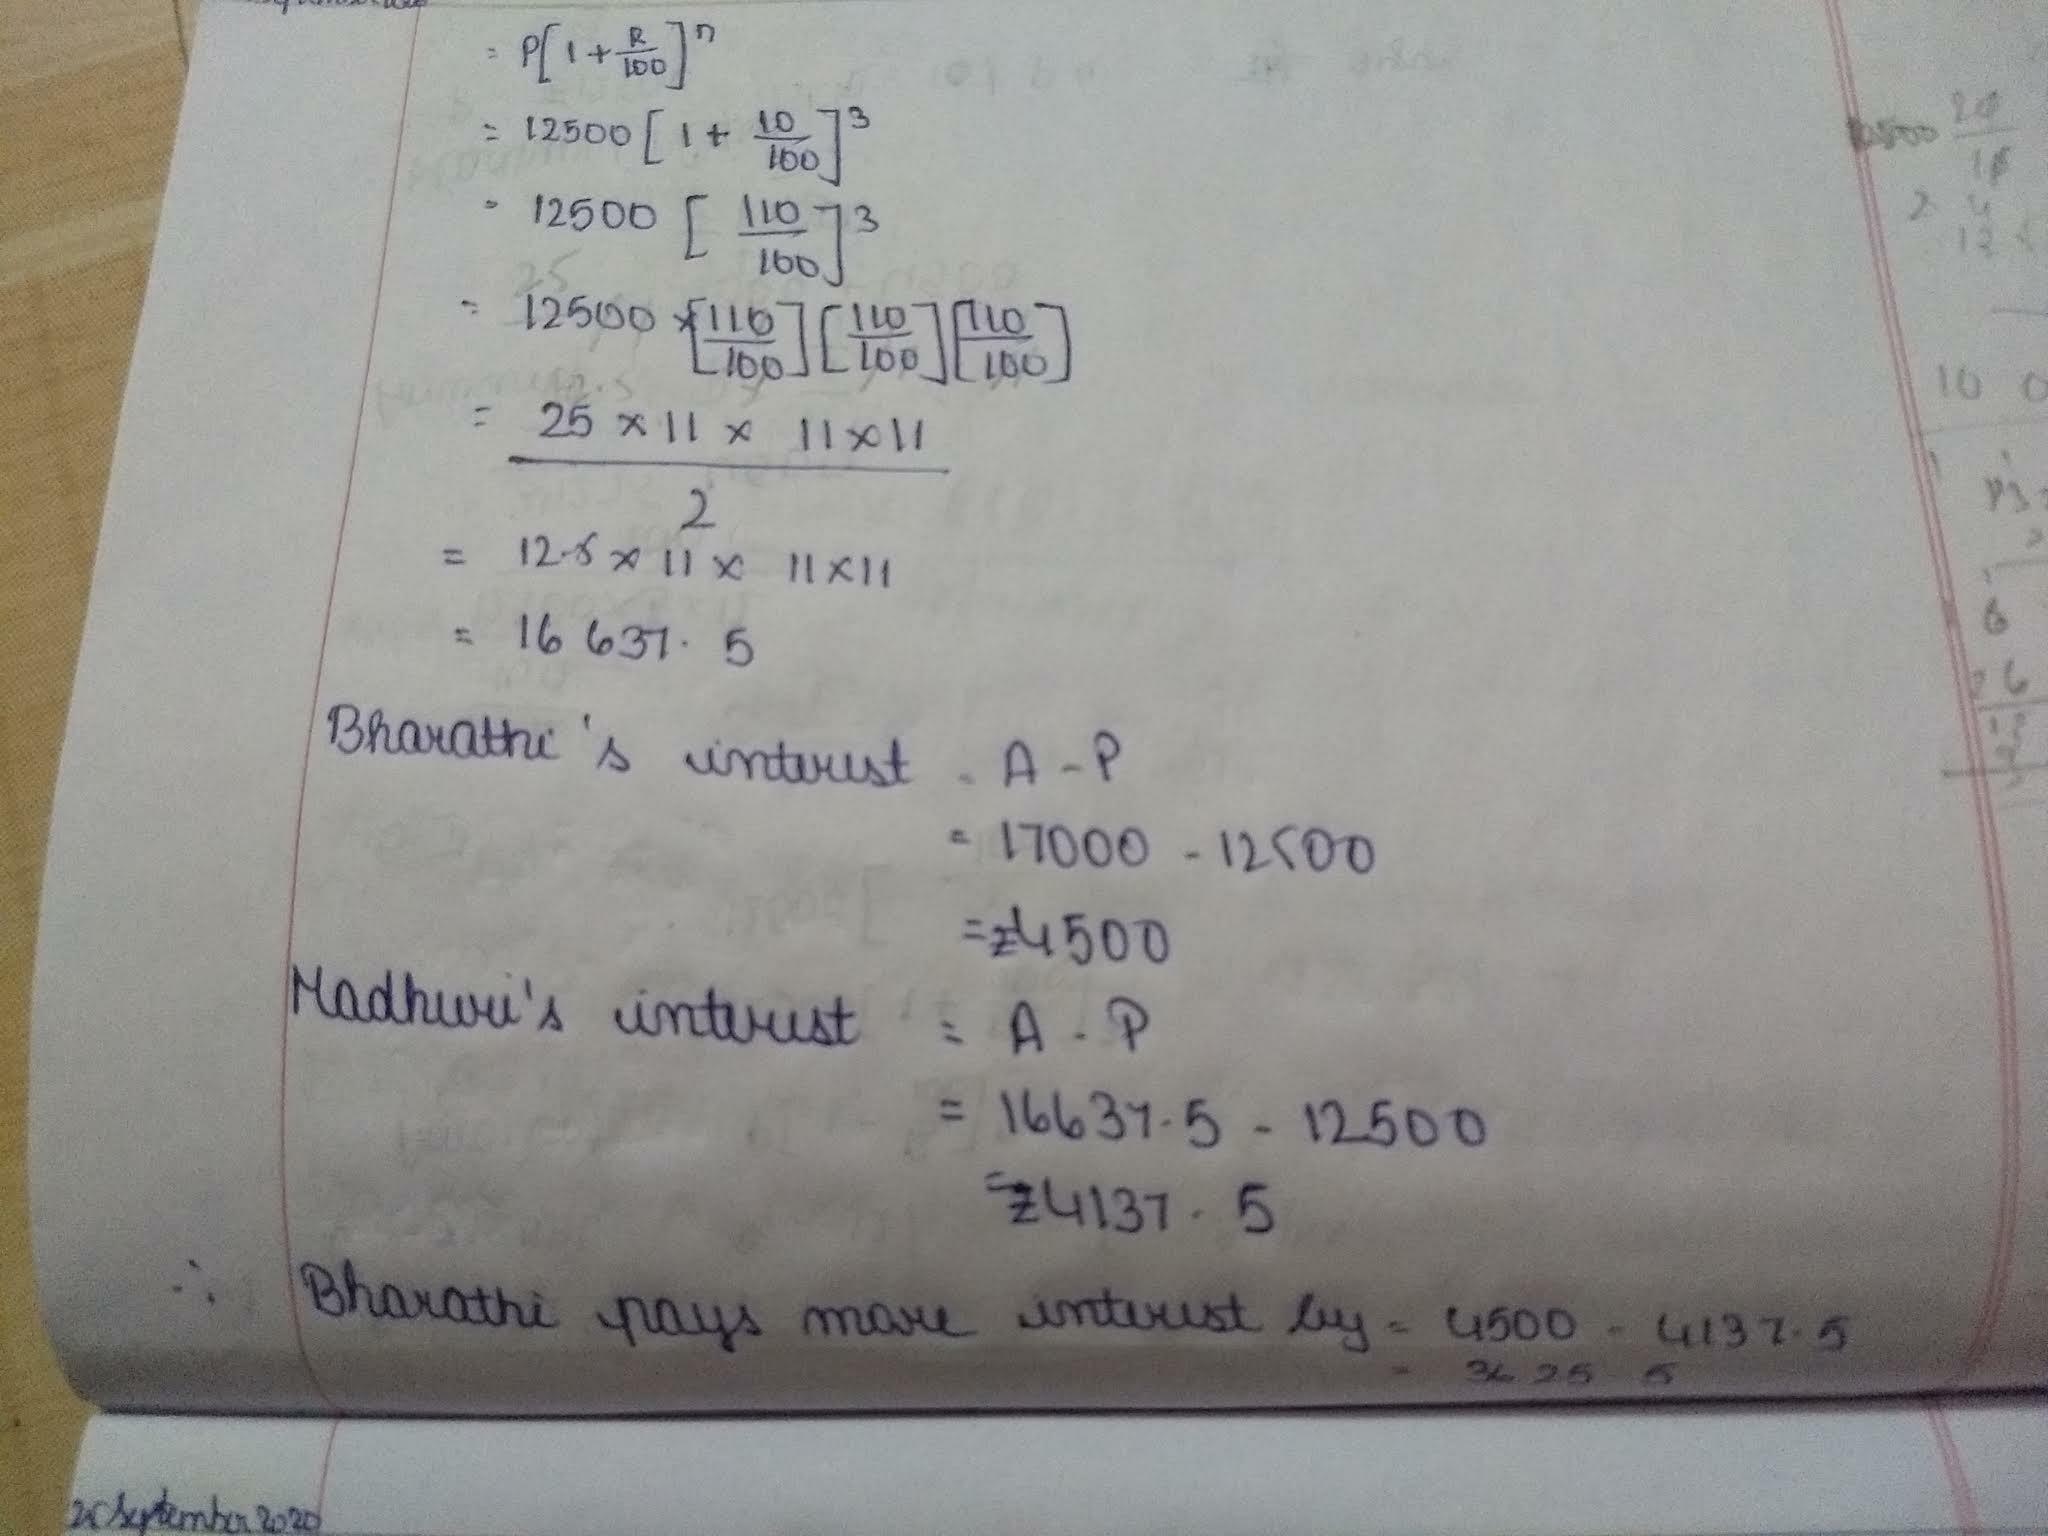 = P[1+R/100]^n
= 12500 [1+ 10/100]^3
= 12500 [110/100]^3
= 12500 × [110/100] [110/100] [110/100]
= 25 × 11 × 11×11 / 2
= 12.5 × 11 × 11×11
= 16 637. 5
Bharathi's interest = A - P
= 17000 - 12500
= ₹4500
Madhuri's interest = A - P
= 16637.5 - 12500
= ₹4137. 5
∴ Bharathi pays more interest by = 4500 - 4137.5
25 September 2020